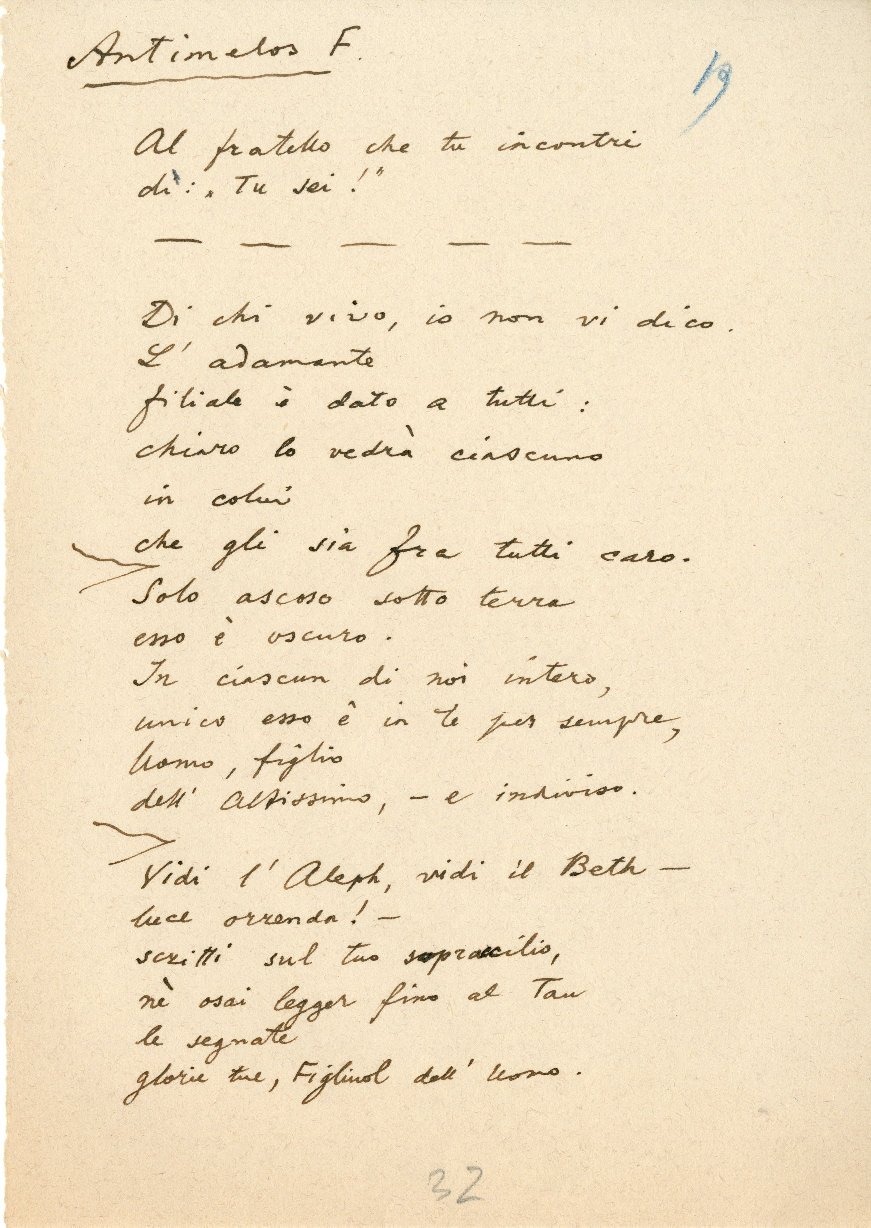 Antimelos F.
19
Al fratello che tu incontri
dì: „Tu sei!"
— — — — —
Di chi vivo, io non vi dico.
L' adamante
filiale è dato a tutti:
chiaro lo vedrà ciascuno
in colui
che gli sia fra tutti caro.
Solo ascoso sotto terra
esso è oscuro.
In ciascun di noi intero,
unico esso è in te per sempre,
Uomo, figlio
dell' Altissimo, — e indiviso.
Vidi l' Aleph, vidi il Beth —
luce orrenda! —
scritti sul tuo sopracilio,
nè osai legger fino al Tau
le segnate
glorie tue, Figliuol dell' Uomo.
32